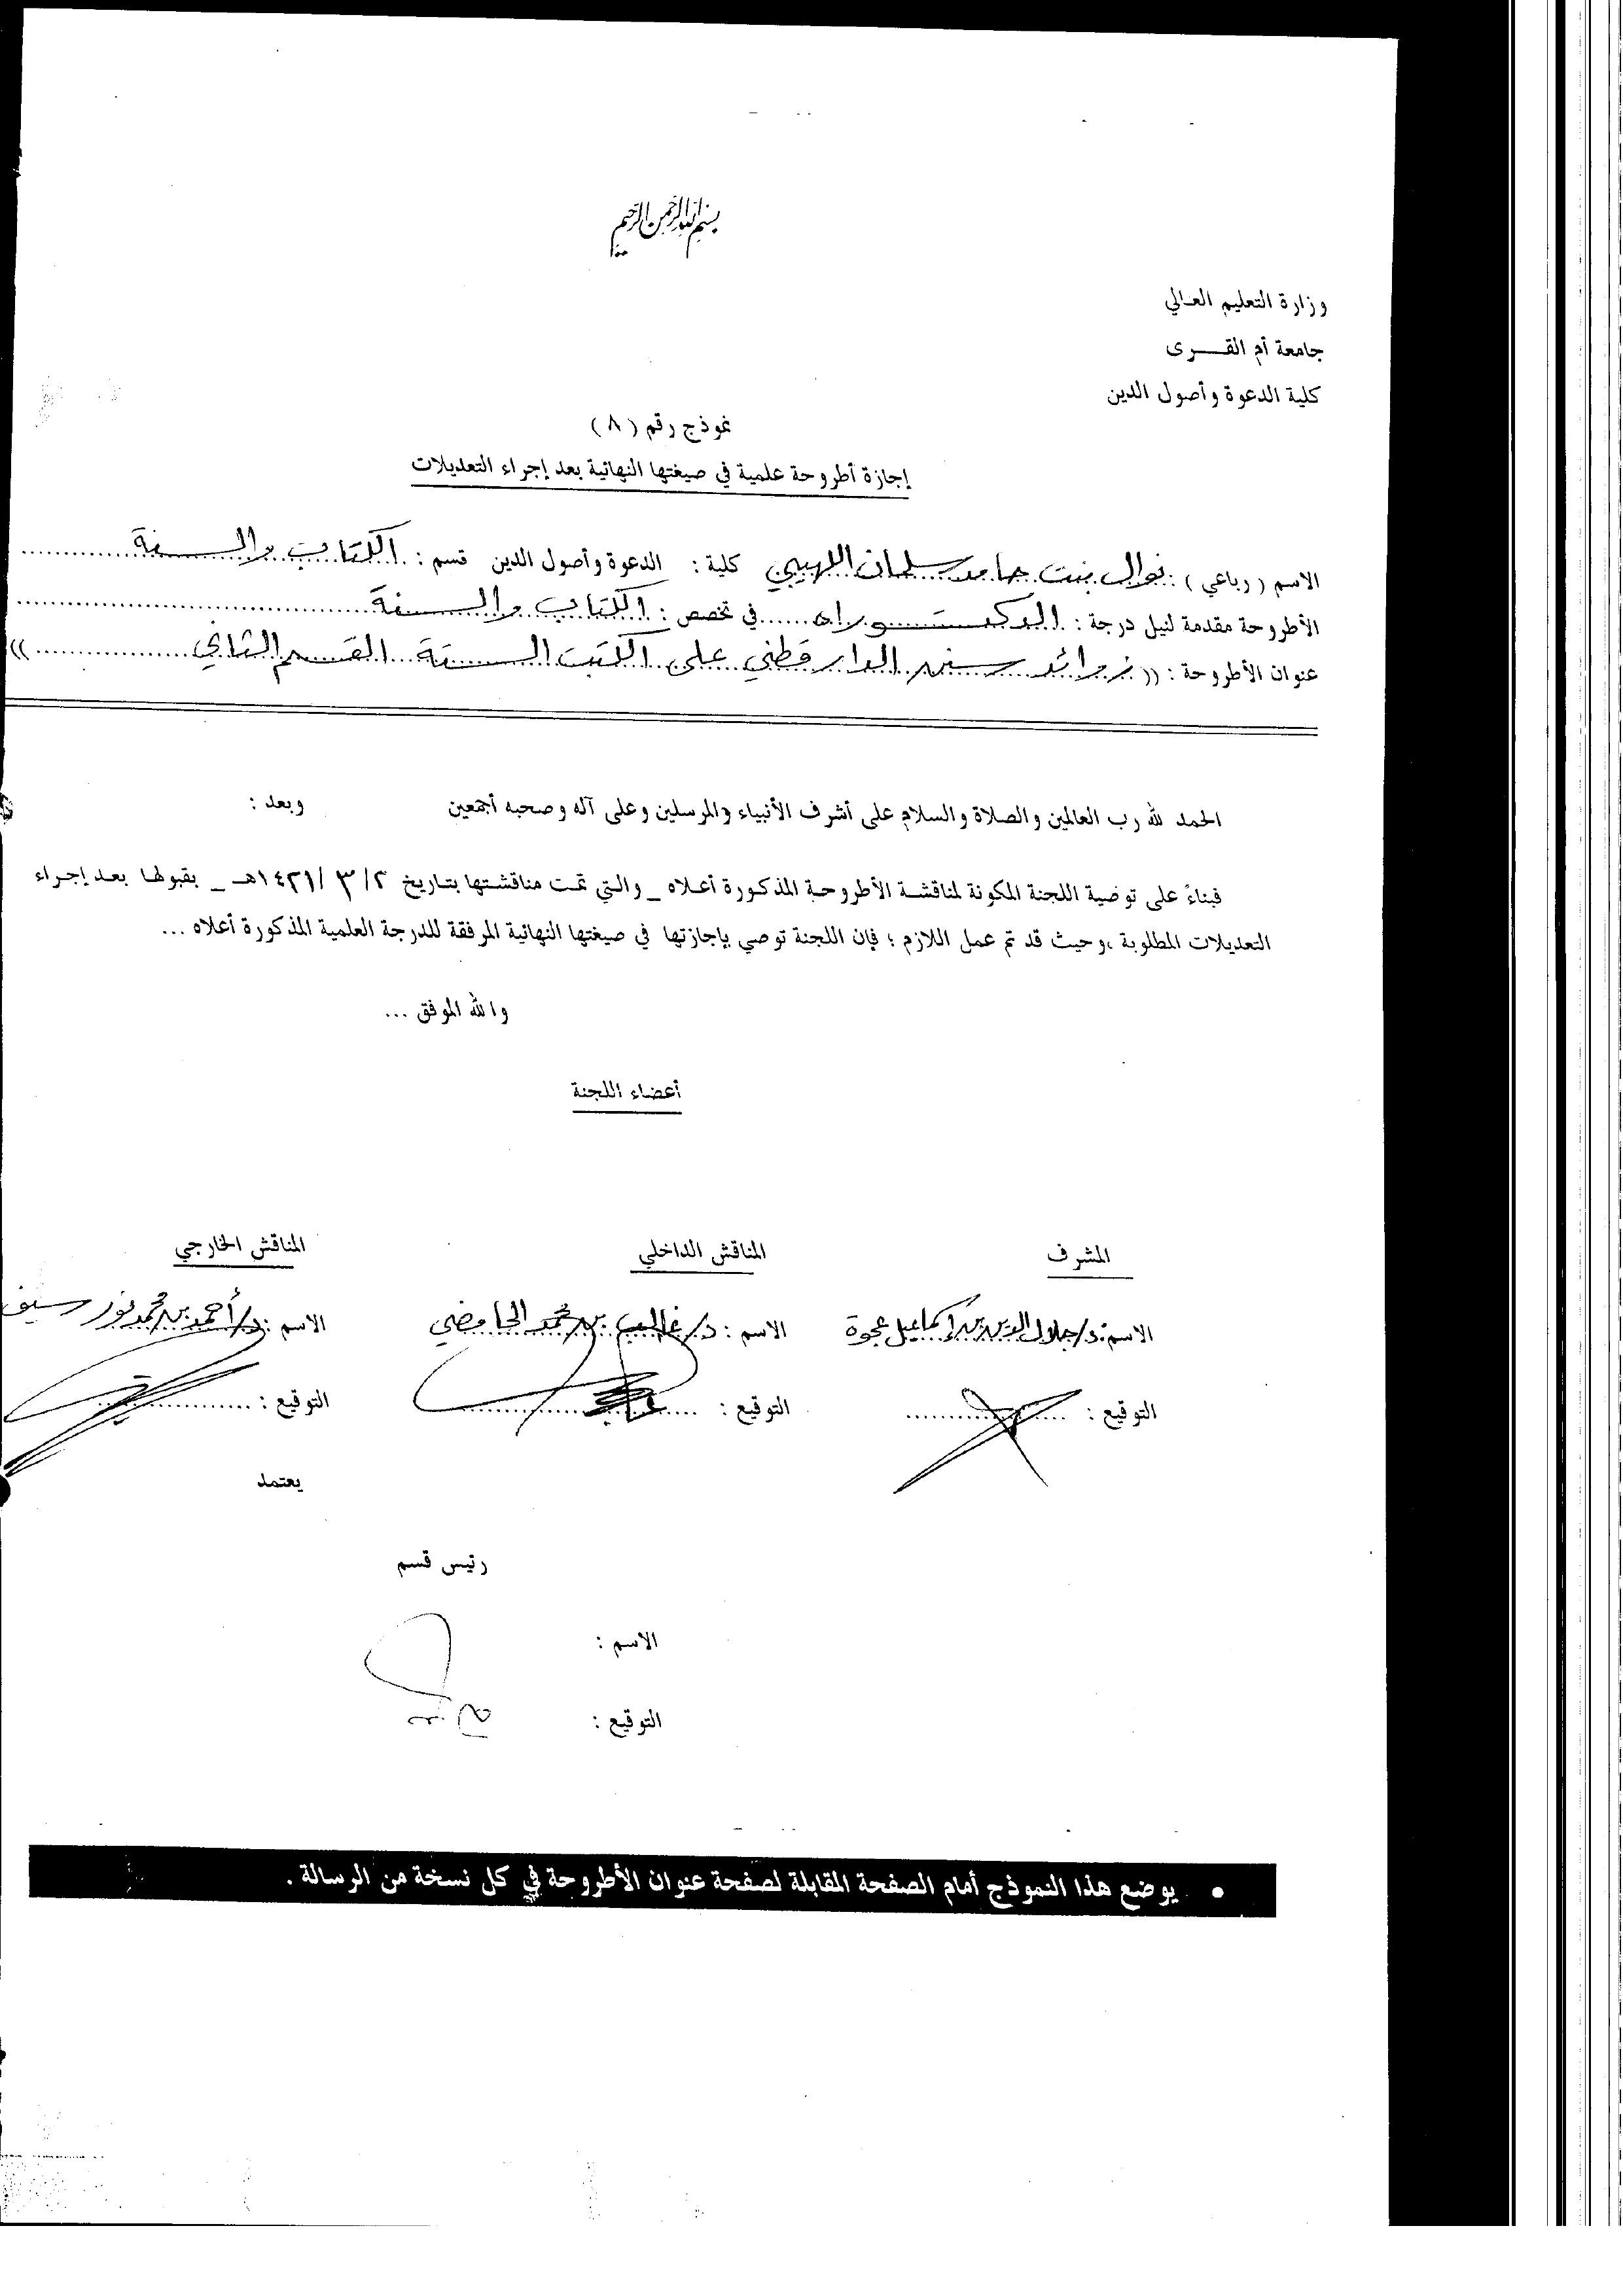 بسم الله الرحمن الرحيم
وزارة التعليم العالي
جامعة أم القـــرى
كلية الدعوة وأصول الدين
نموذج رقم (٨)
إجازة أطروحة علمية في صيغتها النهائية بعد إجراء التعديلات
الاسم ( رباعي ) : نوال بنت حامد سلمان اللهيبي كلية : الدعوة وأصول الدين قسم : الكتاب والسنة
الأطروحة مقدمة لنيل درجة : الدكتوراه في تخصص : الكتاب والسنة
عنوان الأطروحة : (( زوائد سنن الدارقطني على الكتب الستة القسم الثاني ))
الحمد لله رب العالمين والصلاة والسلام على أشرف الأنبياء والمرسلين وعلى آله وصحبه أجمعين وبعد :
فبناءً على توصية اللجنة المكونة لمناقشة الأطروحة المذكورة أعلاه _ والتي تمت مناقشتها بتاريخ ٢/ ٣ /١٤٢١هـ _ بقبولها بعد إجراء
التعديلات المطلوبة ،وحيث قد تم عمل اللازم ؛ فإن اللجنة توصي بإجازتها في صيغتها النهائية المرفقة للدرجة العلمية المذكورة أعلاه ...
والله الموفق ...
أعضاء اللجنة
المشرف المناقش الداخلي المناقش الخارجي
الاسم : د/جلال الدين بن إسماعيل عجوة الاسم : د/غالب بن محمد الحامضي الاسم : د/أحمد بن محمد نور سيف
التوقيع : التوقيع : التوقيع :
يعتمد
رئيس قسم
الاسم :
التوقيع :
• يوضع هذا النموذج أمام الصفحة المقابلة لصفحة عنوان الأطروحة في كل نسخة من الرسالة .